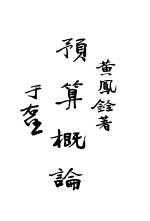 黃鳳銓著
預算概論
于右任